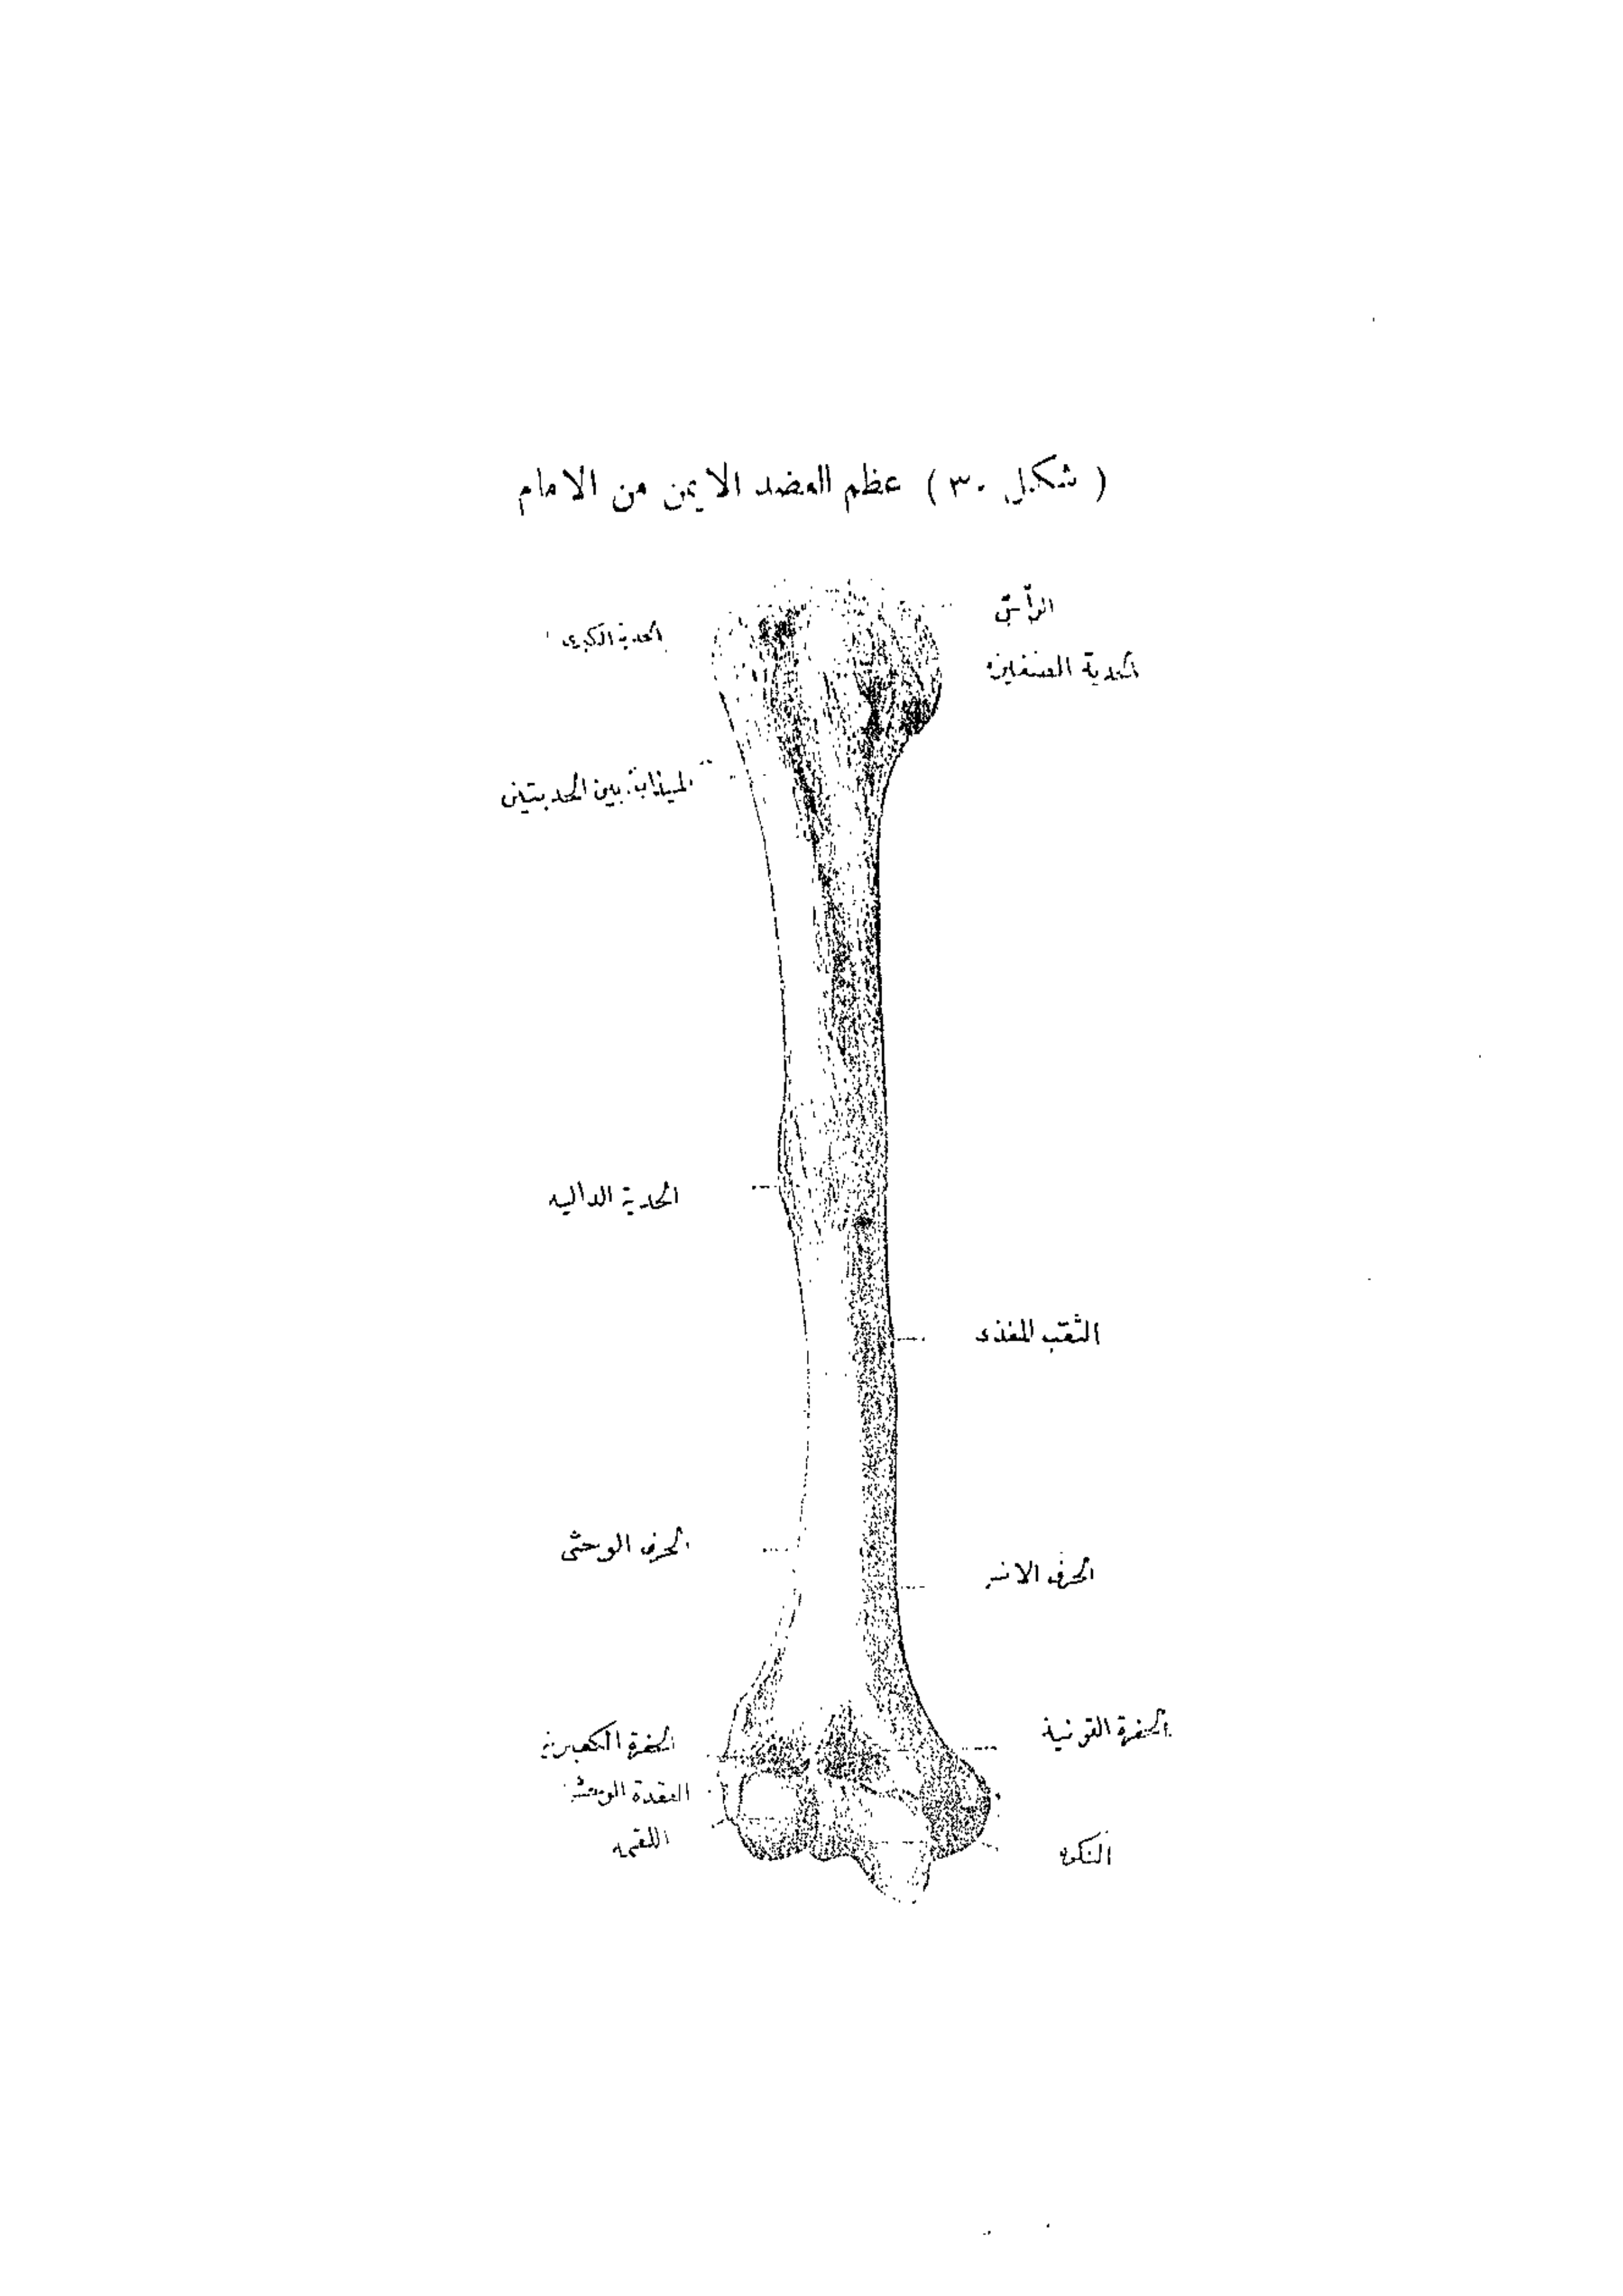 ( شكل ٣٠ ) عظم العضد الايمن من الامام
الرأس
الحدبة الكبرى
الحدبة الصغيرة
الميزاب بين الحدبتين
الحدبة الداليه
الثقب المغذى
الحرف الوحشى
الحرف الانسى
الحفرة القرنية
الحفرة الكعبرية
العقدة الوحشية
اللقمه
البكره